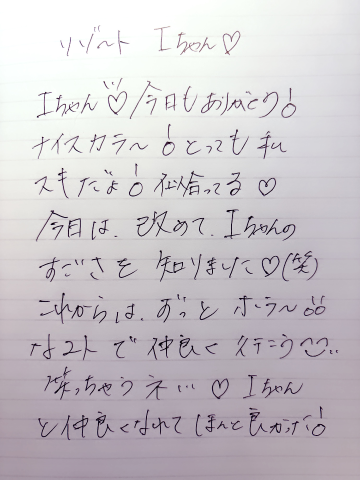 リゾート Iちゃん♡
Iちゃん♡今日もありがとう!
ナイスカラ~!とっても私
スキだよ!似合ってる♡
今日は、改めて、Iちゃんの
すごさを知りました♡(笑)
これからは、ずっとホラ~!!
なコトで仲良く行こう
笑っちゃうネ…♡Iちゃん
と仲良くなれてほんと良かった!